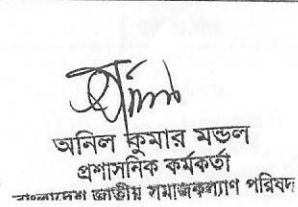 অনিল কুমার মন্ডল
প্রশাসনিক কর্মকর্তা
বাংলাদেশ জাতীয় সমাজকল্যাণ পরিষদ